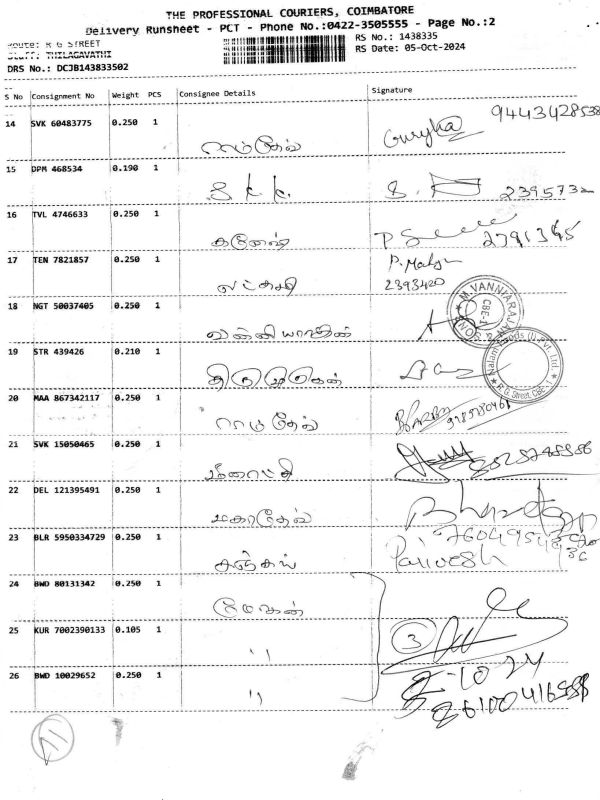 THE PROFESSIONAL COURIERS, COIMBATORE
Delivery Runsheet - PCT - Phone No.:0422-3505555 - Page No.:2
Route: R G STREET
RS No.: 1438335
Staff: THILAGAVATHI
RS Date: 05-Oct-2024
DRS No.: DCJB143833502
S No Consignment No Weight PCS Consignee Details Signature
14 SVK 60483775 0.250 1 ராம்தேவ்
15 DPM 468534 0.190 1 2395732
16 TVL 4746633 0.250 1 கணேஷ்
17 TEN 7821857 0.250 1
2393420
18 NGT 50037405 0.250 1 வன்னியராஜன்
M VANNIARAJAN & SONS
CBE-1
19 STR 439426 0.210 1 திருமுருகன்
R.G. Street, CBE-1
20 MAA 867342117 0.250 1 ராமதேவ்
21 SVK 15050465 0.250 1 மீனாட்சி
22 DEL 121395491 0.250 1 மகாதேவ்
23 BLR 5950334729 0.250 1 சஞ்சய்
24 BWD 80131342 0.250 1
25 KUR 7002390133 0.105 1 ''
3
26 BWD 10029652 0.250 1 ''
11